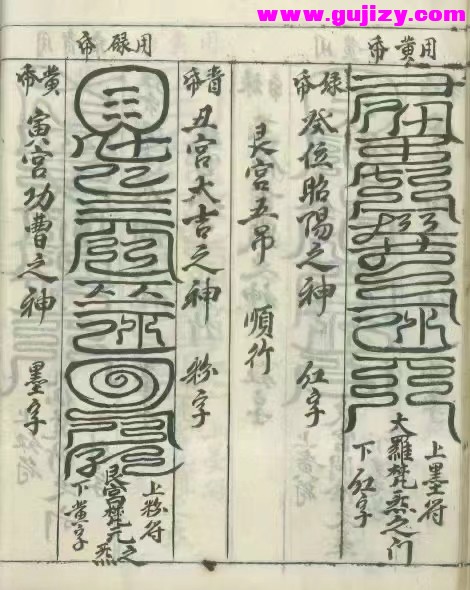 www.gujizy.com
用黄帝
上墨符
大羅梵炁之门
下紅字
碌帝
癸位昭陽之神 紅字
艮宫五吊 順行
青帝
丑宫大吉之神 粉字
用碌帝
上粉符
艮宫梵元之炁
下黄字
黄帝
寅宫功曹之神 墨字